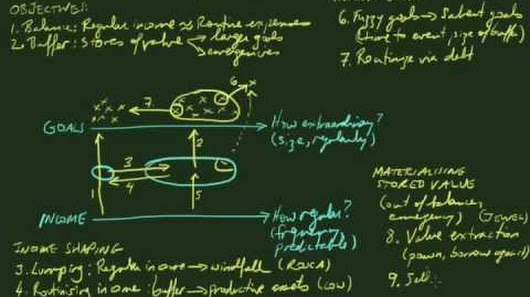 OBJECTIVES:
1. Balance: Regular income ≈ Routine expenses
2. Buffer: Stores of value
larger goals
emergencies
6. Fuzzy goals → Salient goals
(time to event, size of buffer)
7. Routinize via debt
6
7
GOALS
How extraordinary?
(size, regularity)
2
3
4
1
5
INCOME
How regular?
(frequency,
predictable)
MATERIALISING
STORED VALUE
(out of balance,
emergency) (JEWEL)
8. Value extraction
(pawn, borrow against)
9. Sell
INCOME SHAPING
3. Lumping: Regular income → windfall (ROSCA)
4. Routinising income: buffer → productive assets (COW)